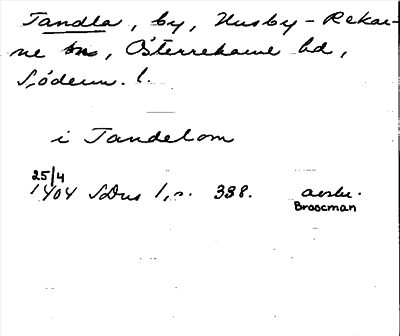 Tandla, by, Husby-Rekar-
ne sn, Österrekarne hd,
Söderm. l.
i Tandelom
25/4
1404 SDns 1, s. 338. avskr.
Broocman